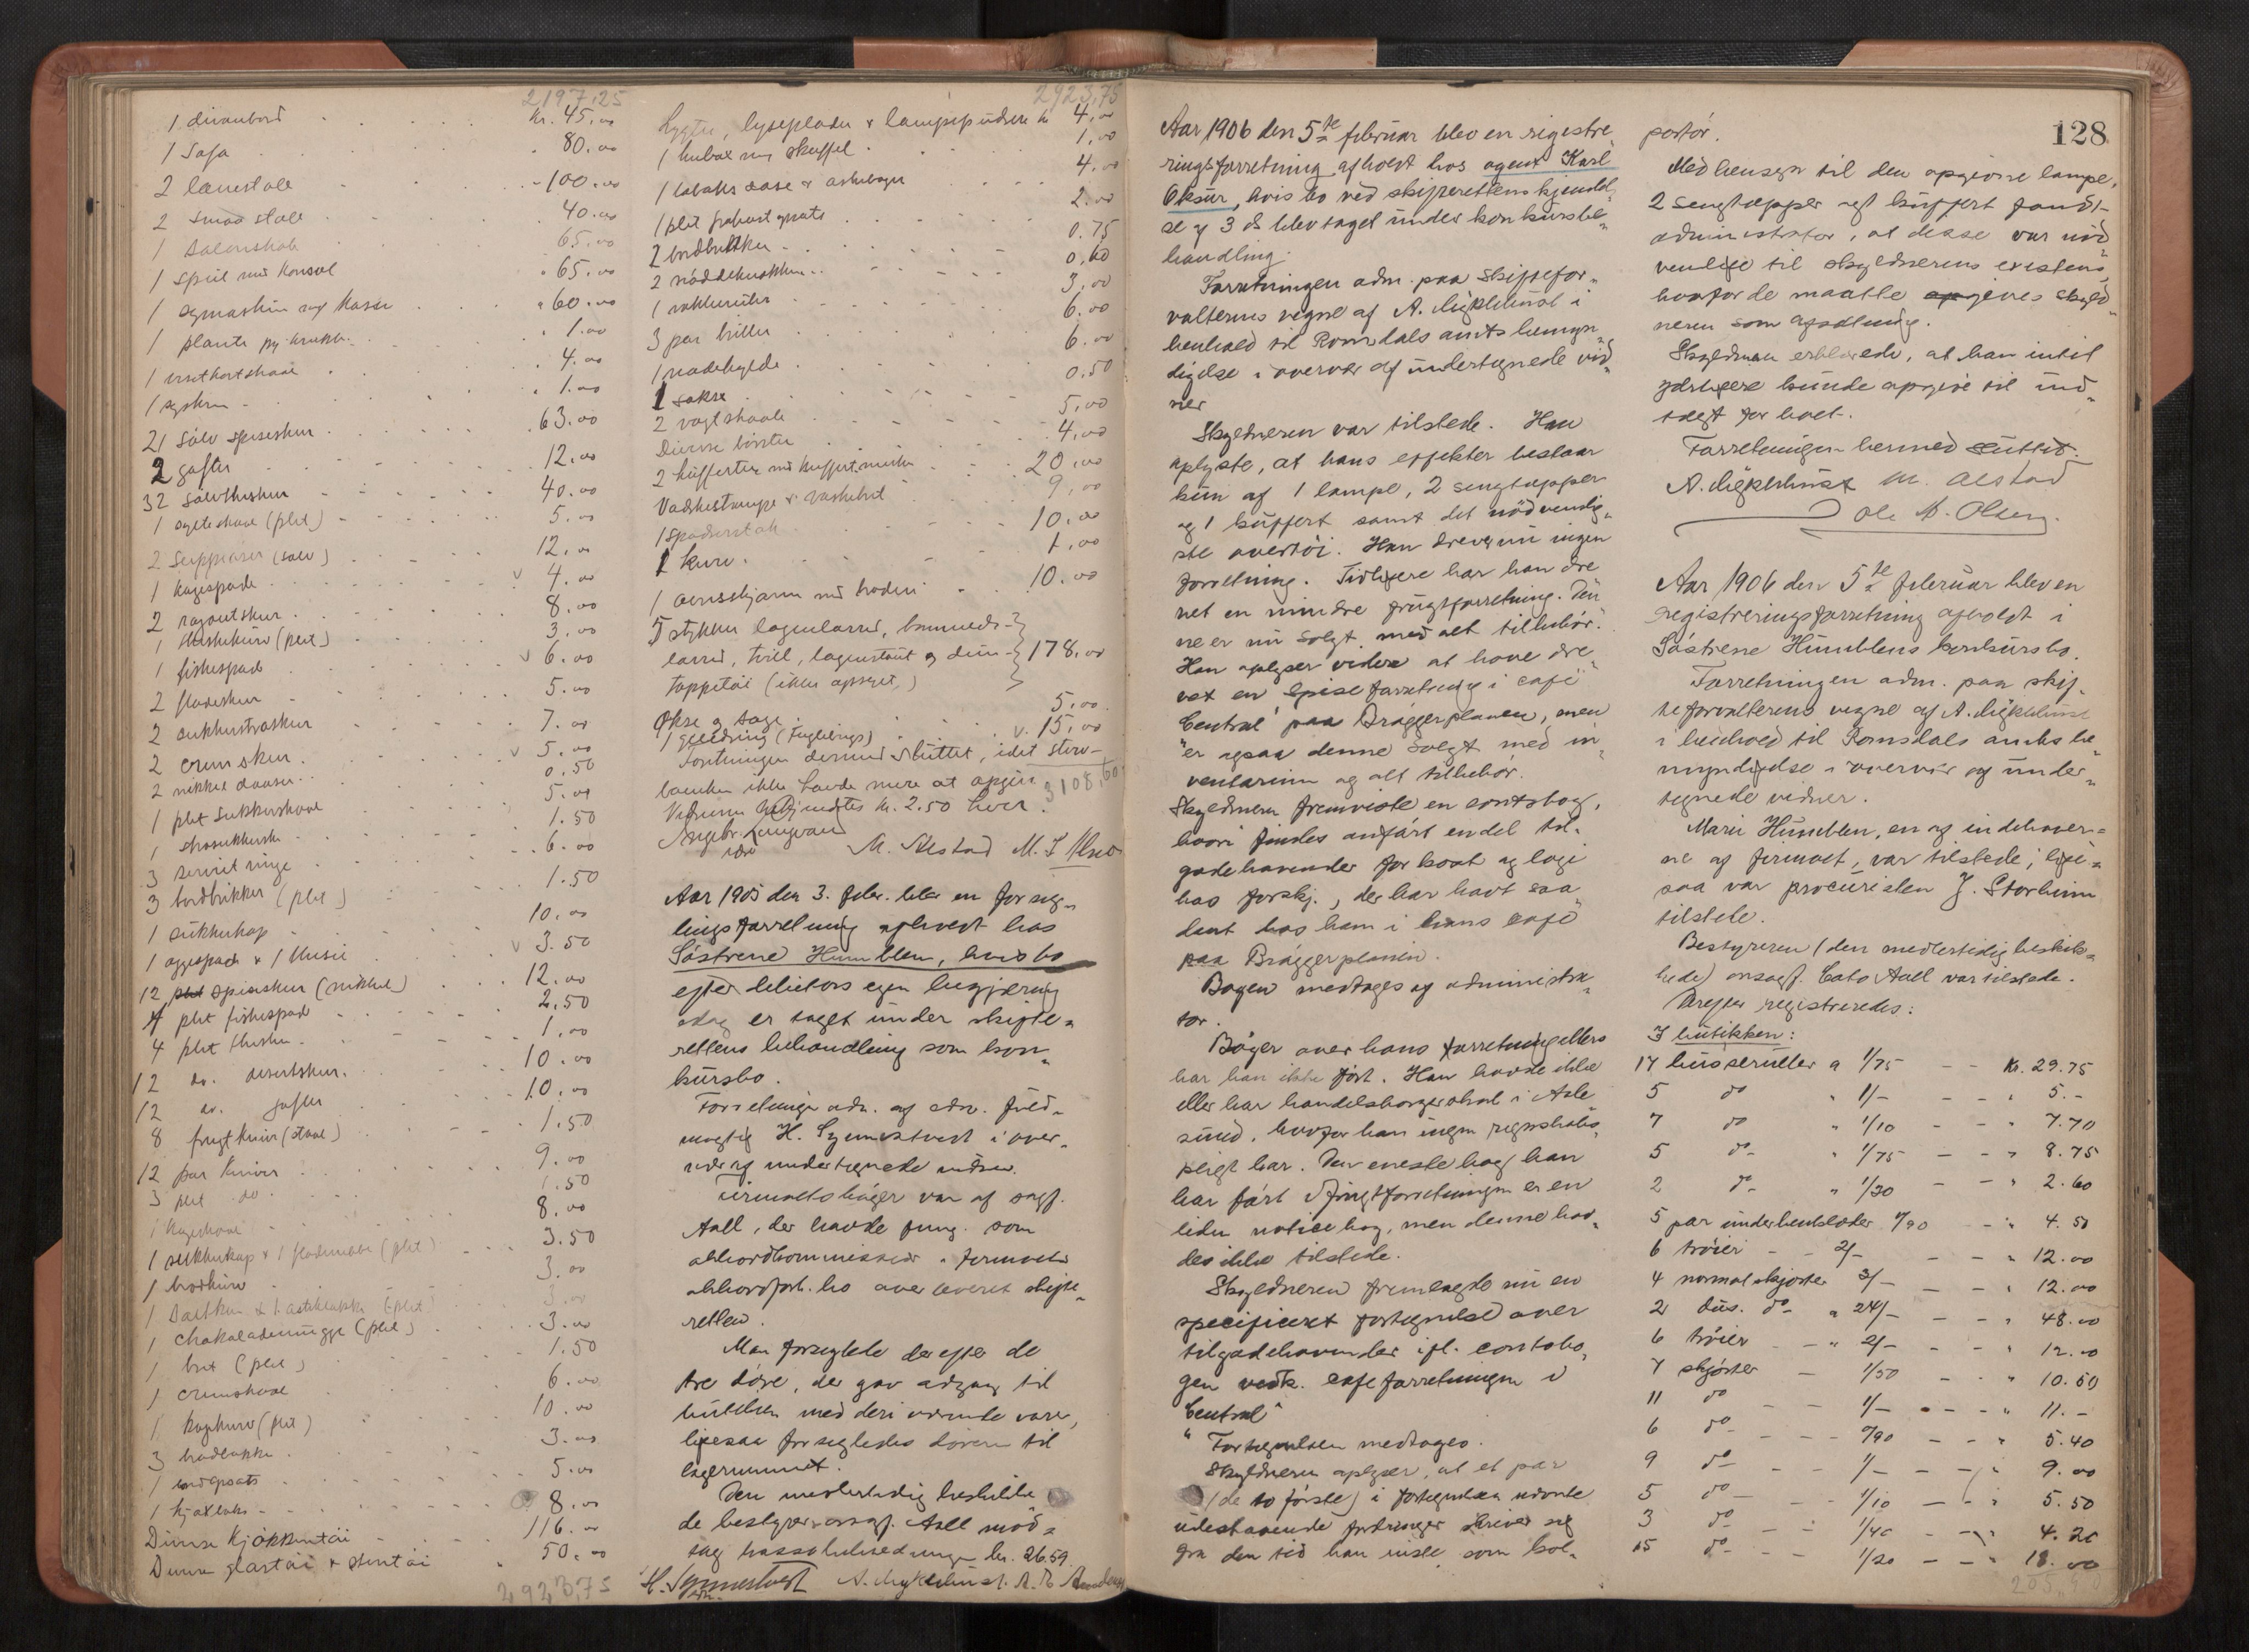 2197,25
1 divanbord kr. 45.00
1 Sofa 80.00
2 lænestole 100.00
2 smaa stole 40.00
1 Salonskab 65.00
1 speil med Konsol 65.00
1 symaskin 60.00
1 plante 1.00
1 visitkortskaal 4.00
1 syskrin 1.00
21 sølv spiseskeer 63.00
2 gafler 12.00
32 sølvtheskeer 40.00
1 sylteskaal (plet) 5.00
2 (sølv) 12.00
1 kagespade 4.00
2 ragoutskeer 8.00
1 (plet) 3.00
1 fiskespade 6.00
2 flødeskeer 5.00
2 7.00
2 cremskeer 5.00
2 nikkel 0.50
1 plet sukkerskaal 5.00
1 1.50
3 serviet ringe 6.00
3 bordbrikker (plet) 1.50
1 sukkerkop 10.00
1 3.50
12 spiseskeer (nikkel) 12.00
4 plet fiskespade 2.50
4 plet theskeer 1.00
12 do. desertskeer 10.00
12 do. gafler 10.00
8 frugtknive (staal) 1.50
12 par knive 9.00
3 plet do. 1.50
1 kageskaal 8.00
1 sukkerkop & 1 (plet) 3.50
1 brødkurv 3.00
1 (plet) 3.00
1 chokolademugge (plet) 3.00
1 bret (plet) 1.50
1 cremskaal 6.00
1 kagekurv (plet) 10.00
3 3.00
1 bordopsats 5.00
1 8.00
Diverse kjøkkentøi 116.00
Diverse glastøi & stentøi 50.00
2923,75
2923,75
Lygter, lyseplader & 4.00
1 kulbox med skuffel 1.00
1 tobaks daase & askebæger 4.00
1 plet frokost opsats 2.00
2 0.75
2 nøddeknækkere 0.60
1 3.00
3 par briller 6.00
1 6.00
1 sakse 0.50
2 vægtskaale 5.00
Diverse børster 4.00
2 kufferter 20.00
9.00
1 spaserstok 10.00
1 kurv 1.00
1 10.00
5 stykker lagenlærred,
lærred, tvill, 178.00
(ikke opsyet)
Økse og sage 5.00
1 (Faglievgs) 15.00
Forretningen dermed sluttet, idet
ikke havde mere at opgive 3108,60
Vidnerne kr. 2.50 hver.
M. Alstad
Aar 1905 den 3. febr. blev en forseg-
lingsforretning afholdt hos
Søstrene Humblen, hvis bo
efter debitors egen begjæring
idag er taget under skifte-
rettens behandling som kon-
kursbo.
Forretningen adm. af adv. fuld-
mægtig H. Synnestvedt i over-
vær af undertegnede vidner.
Firmaets bøger var af sagf.
Aall, der havde fung. som
akkordkommissær i firmaets
akkordforh. bo overleveret skifte-
retten.
Man forseglede derefter de
tre døre, der gav adgang til
butikken med deri værende varer,
ligesaa forsegledes døren til
lagerrummet.
Den midlertidig beskikke
de bestyrer ovsagf. Aall mod-
tog kassabeholdningen kr. 26.59.
H. Synnestvedt A. Myklebust.
128
Aar 1906 den 5te februar blev en registre
ringsforretning afholdt hos agent Karl
Oksur, hvis bo ved skifterettens kjendel-
se af 3 ds blev taget under konkursbe-
handling.
Forretningen adm. paa skiftefor-
valterens vegne af A. Myklebust i
henhold til Romsdals amts bemyn-
digelse i overvær af undertegnede vid-
ner
Skyldneren var tilstede. Han
oplyste, at hans effekter bestaar
kun af 1 lampe, 2 sengtæpper
og 1 kuffert samt det nødvendig-
ste overtøi. Han drever nu ingen
forretning. Tidligere har han dre
vet en mindre frugtforretning. Den-
ne er nu solgt med alt tilbehør.
Han oplyser videre at have dre
vet en spiseforretning i café
"Central" paa Bryggerplanen, men
er ogsaa denne solgt med in-
ventarium og alt tilbehør.
Skyldneren fremviste en contobog,
hvori findes anført endel til-
godehavender for kost og logi
hos forskj., der har havt saa
dant hos ham i hans café
paa Bryggerplanen.
Bogen medtages af administra-
tor.
Bøger over hans forretning ellers
har han ikke ført. Han havde ikke
eller har handelsborgerskab i Aale
sund, hvorfor han ingen regnskabs-
pligt har. Den eneste bog han
har ført i frugtforretningen er en
liden notice bog, men denne hav-
des ikke tilstede.
Skyldneren fremlagde nu en
specificert fortegnelse over
tilgodehavender ifl. contobo-
gen vedk. caféforretningen i
"Central"
Fortegnelsen medtages.
Skyldneren oplyser, at et par
(de to første) i fortegnelsen nævnte
udestaaende fordringer skriver sig
fra den tid han reiste som kol-
portør.
Med hensyn til den opgivne lampe,
2 sengtæpper og 1 kuffert fandt
administrator, at disse var nød
vendige til skyldnerens existens
hvorfor de maatte gives skyld-
neren som afsætning.
Skyldneren erklærede, at han intet
yderligere kunde opgive til ind-
tægt for boet.
Forretningen hermed sluttet.
A. Myklebust M. Alstad
Ole M. Olsen.
Aar 1906 den 5te februar blev en
registreringsforretning afholdt i
Søstrene Humblens konkursbo.
Forretningen adm. paa skif-
teforvalterens vegne af A. Myklebust
i henhold til Romsdals amts be-
myndigelse i overvær af under-
tegnede vidner.
Marie Humblen, en af indehaver-
ne af firmaet, var tilstede; lige-
saa var procuristen J. Storheim
tilstede.
Bestyreren (den midlertidig beskik-
kede) ovsagf. Cato Aall var tilstede.
Derefter registreredes:
I butikken:
17 luseruller a 1/75 kr. 29.75
5 do " 1/- " 5.-
7 do " 1/10 " 7.70
5 do " 1/75 " 8.75
2 do " 1/30 " 2.60
5 par underbenklæder 0/90 " 4.50
6 trøier 2/- " 12.00
4 normalskjorter 3/- " 12.00
2 dus. do " 24/- " 48.00
6 trøier " 2/- " 12.00
7 skjorter 1/50 " 10.50
11 do 1/- " 11.-
6 do 0/90 " 5.40
9 do 1/- " 9.00
5 do 1/10 " 5.50
3 do 1/40 " 4.20
15 do 1/20 " 18.00